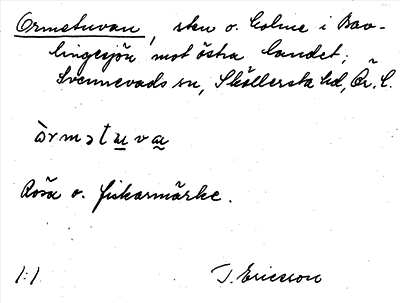 Ormstuvan, sten o. holme i Bav-
lingesjön mot östra landet;
Svennevads sn, Sköllersta hd, Ör. l.
òrmstu̲va̲
Rosa o. fiskarmärke.
1:1 T. Ericsson